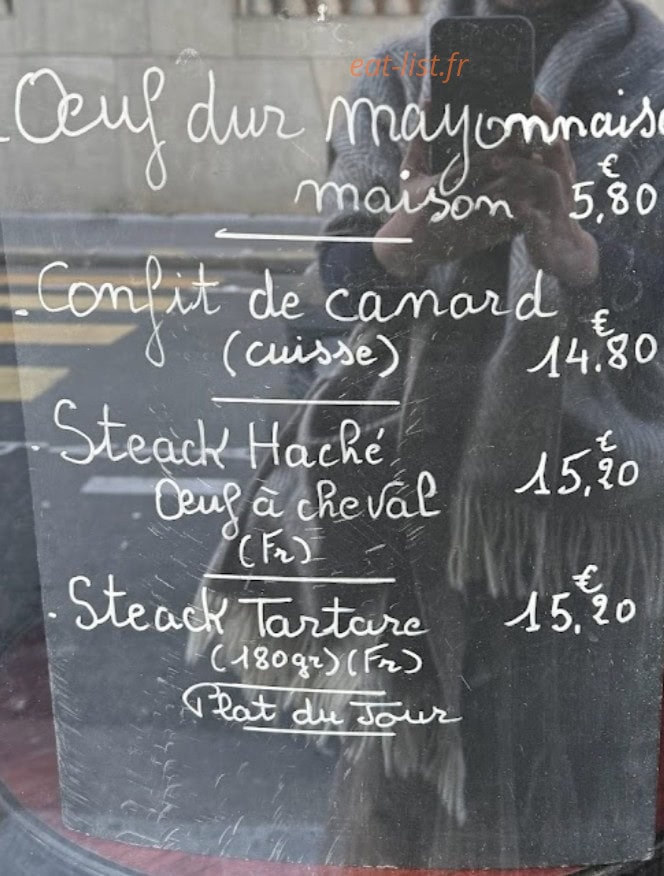 eat-list.fr
. Oeuf dur mayonnaise
maison 5,80 €
. Confit de canard
(cuisse) 14.80 €
. Steack Haché 15,20 €
Oeuf à cheval
(Fr)
. Steack Tartare 15,20 €
(180gr) (Fr)
Plat du Jour